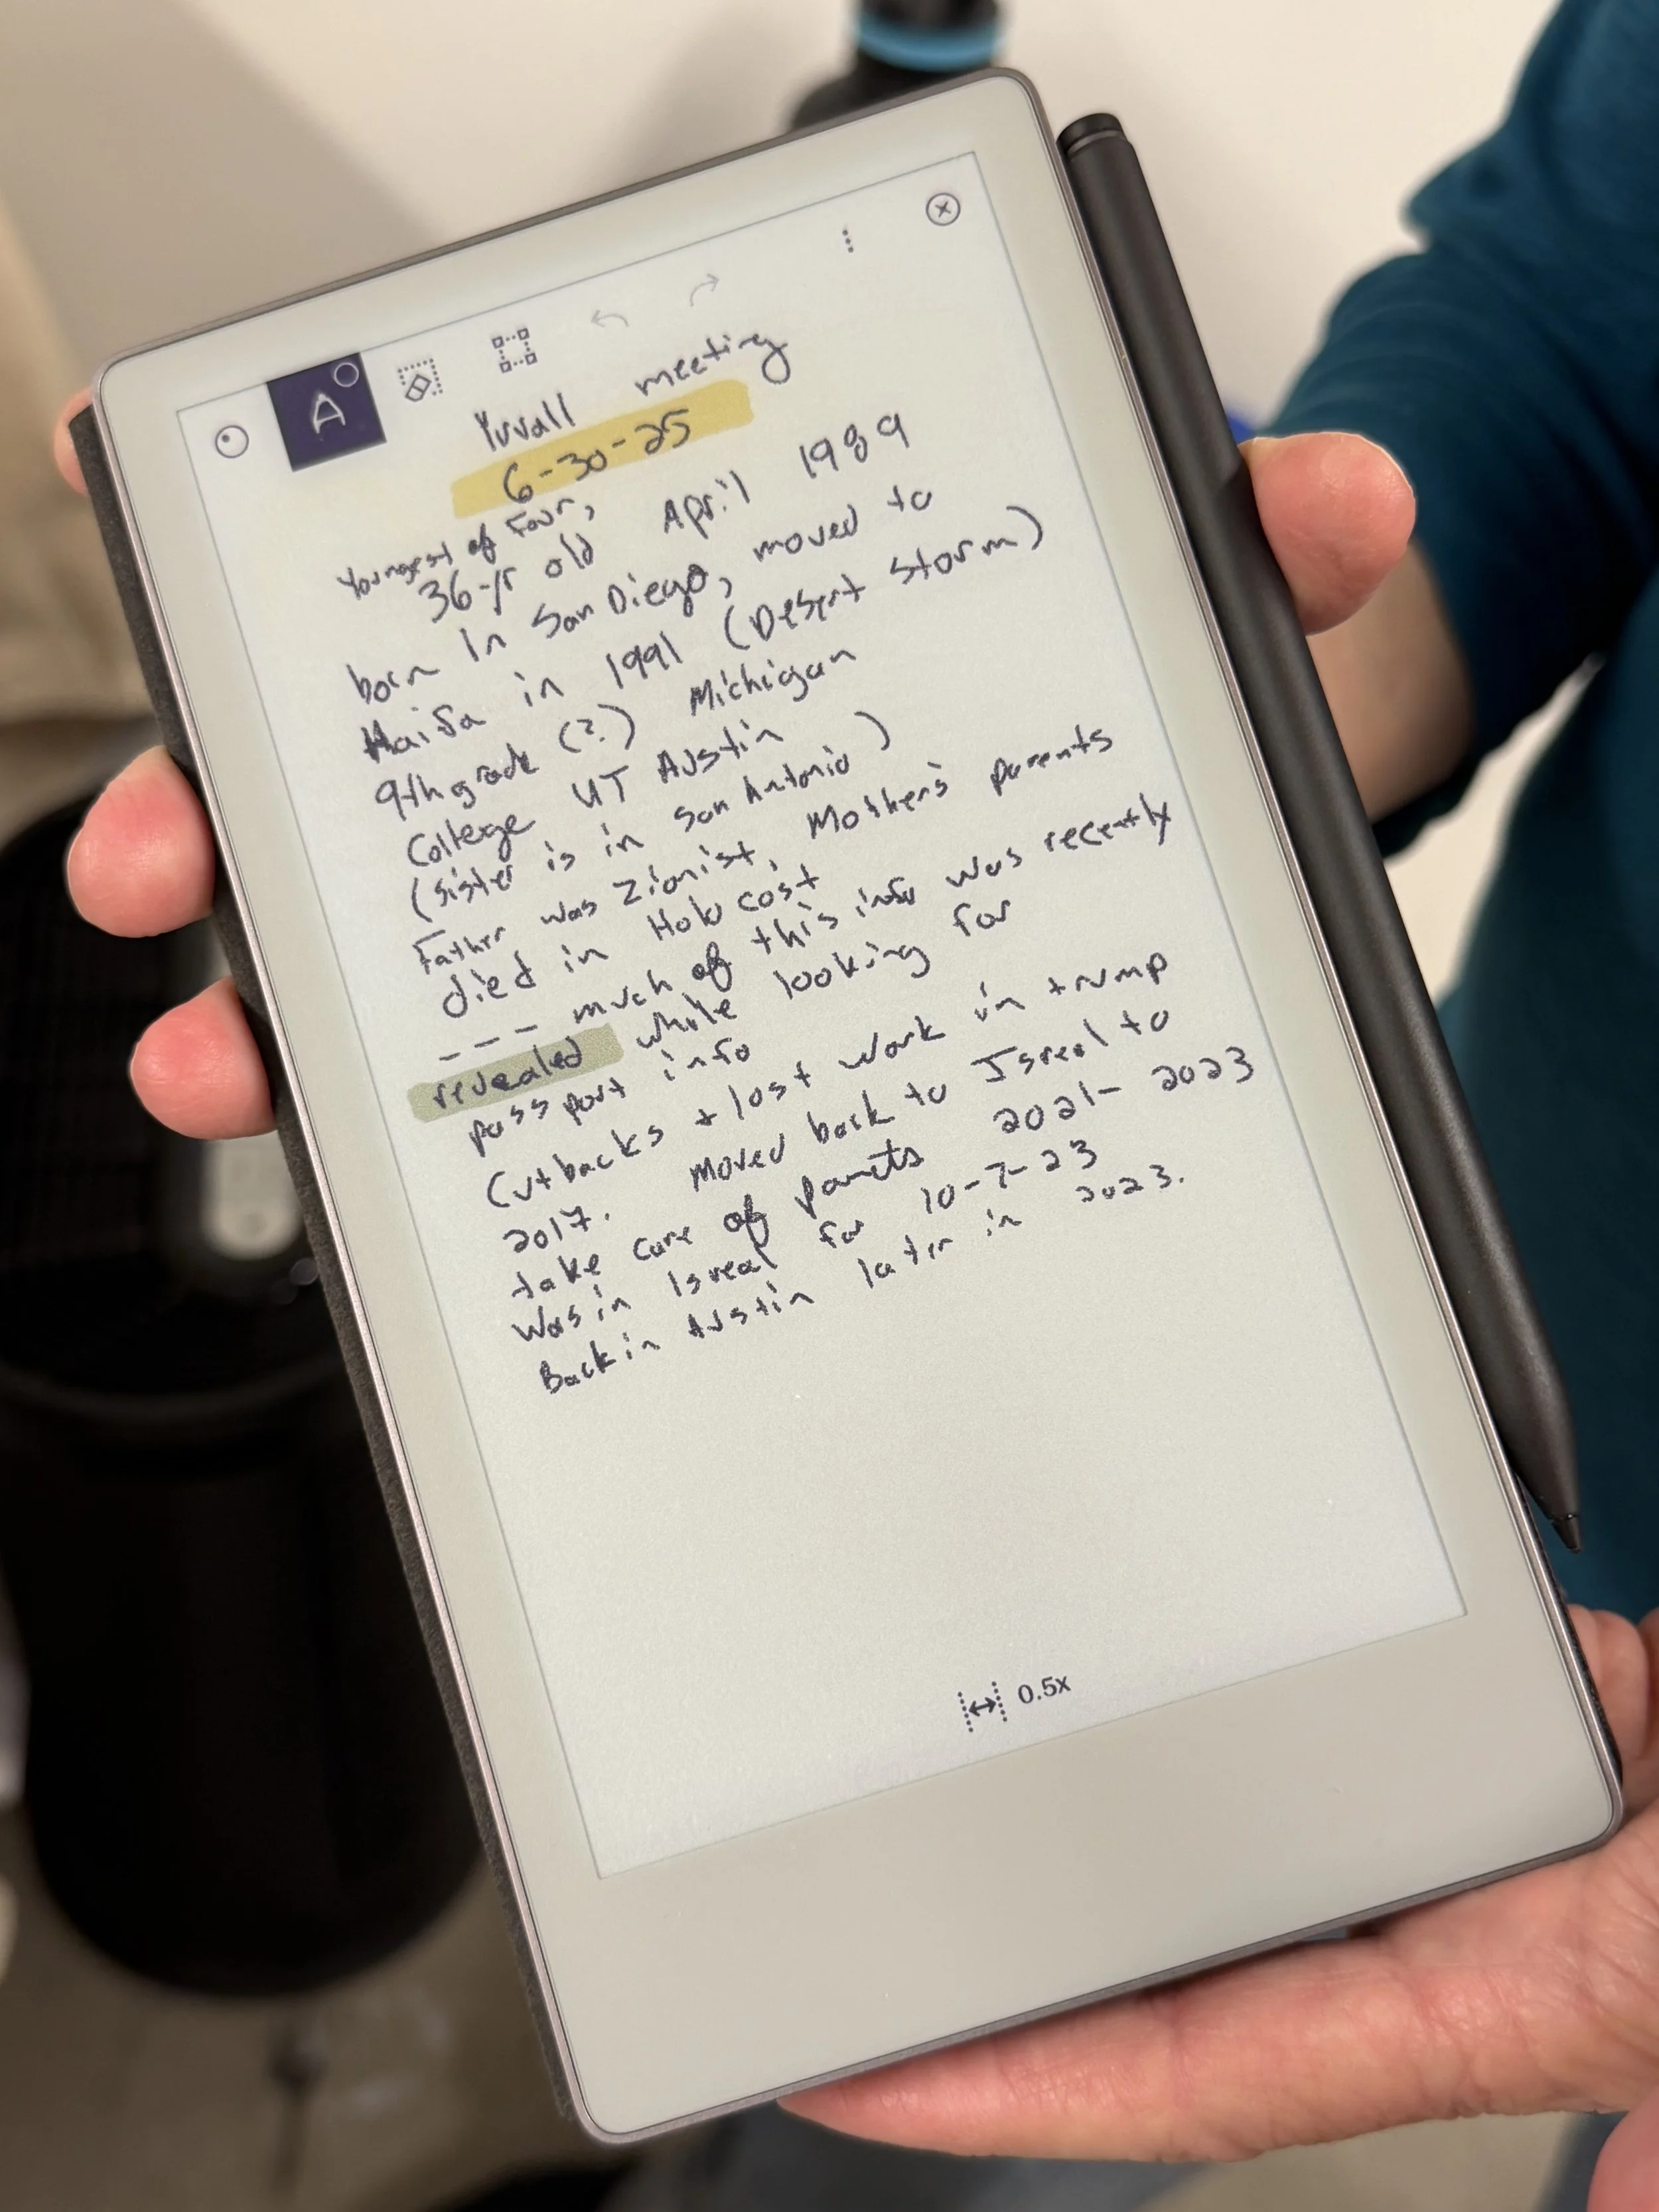 A
Yuvall meeting
6-30-25
Youngest of Four,
36-yr old April 1989
born In San Diego, moved to
Haifa in 1991 (Desert Storm)
9th grade (?) Michigan
College UT Austin
(sister is in San Antonio)
Father was Zionist, Mother's parents
died in Holocost
--- much of this info was recently
revealed while looking for
passport info
Cutbacks + lost work in trump
2017. Moved back to Isreal to
take care of parents 2021-2023
Was in Isreal for 10-7-23
Back in Austin later in 2023.
0.5x